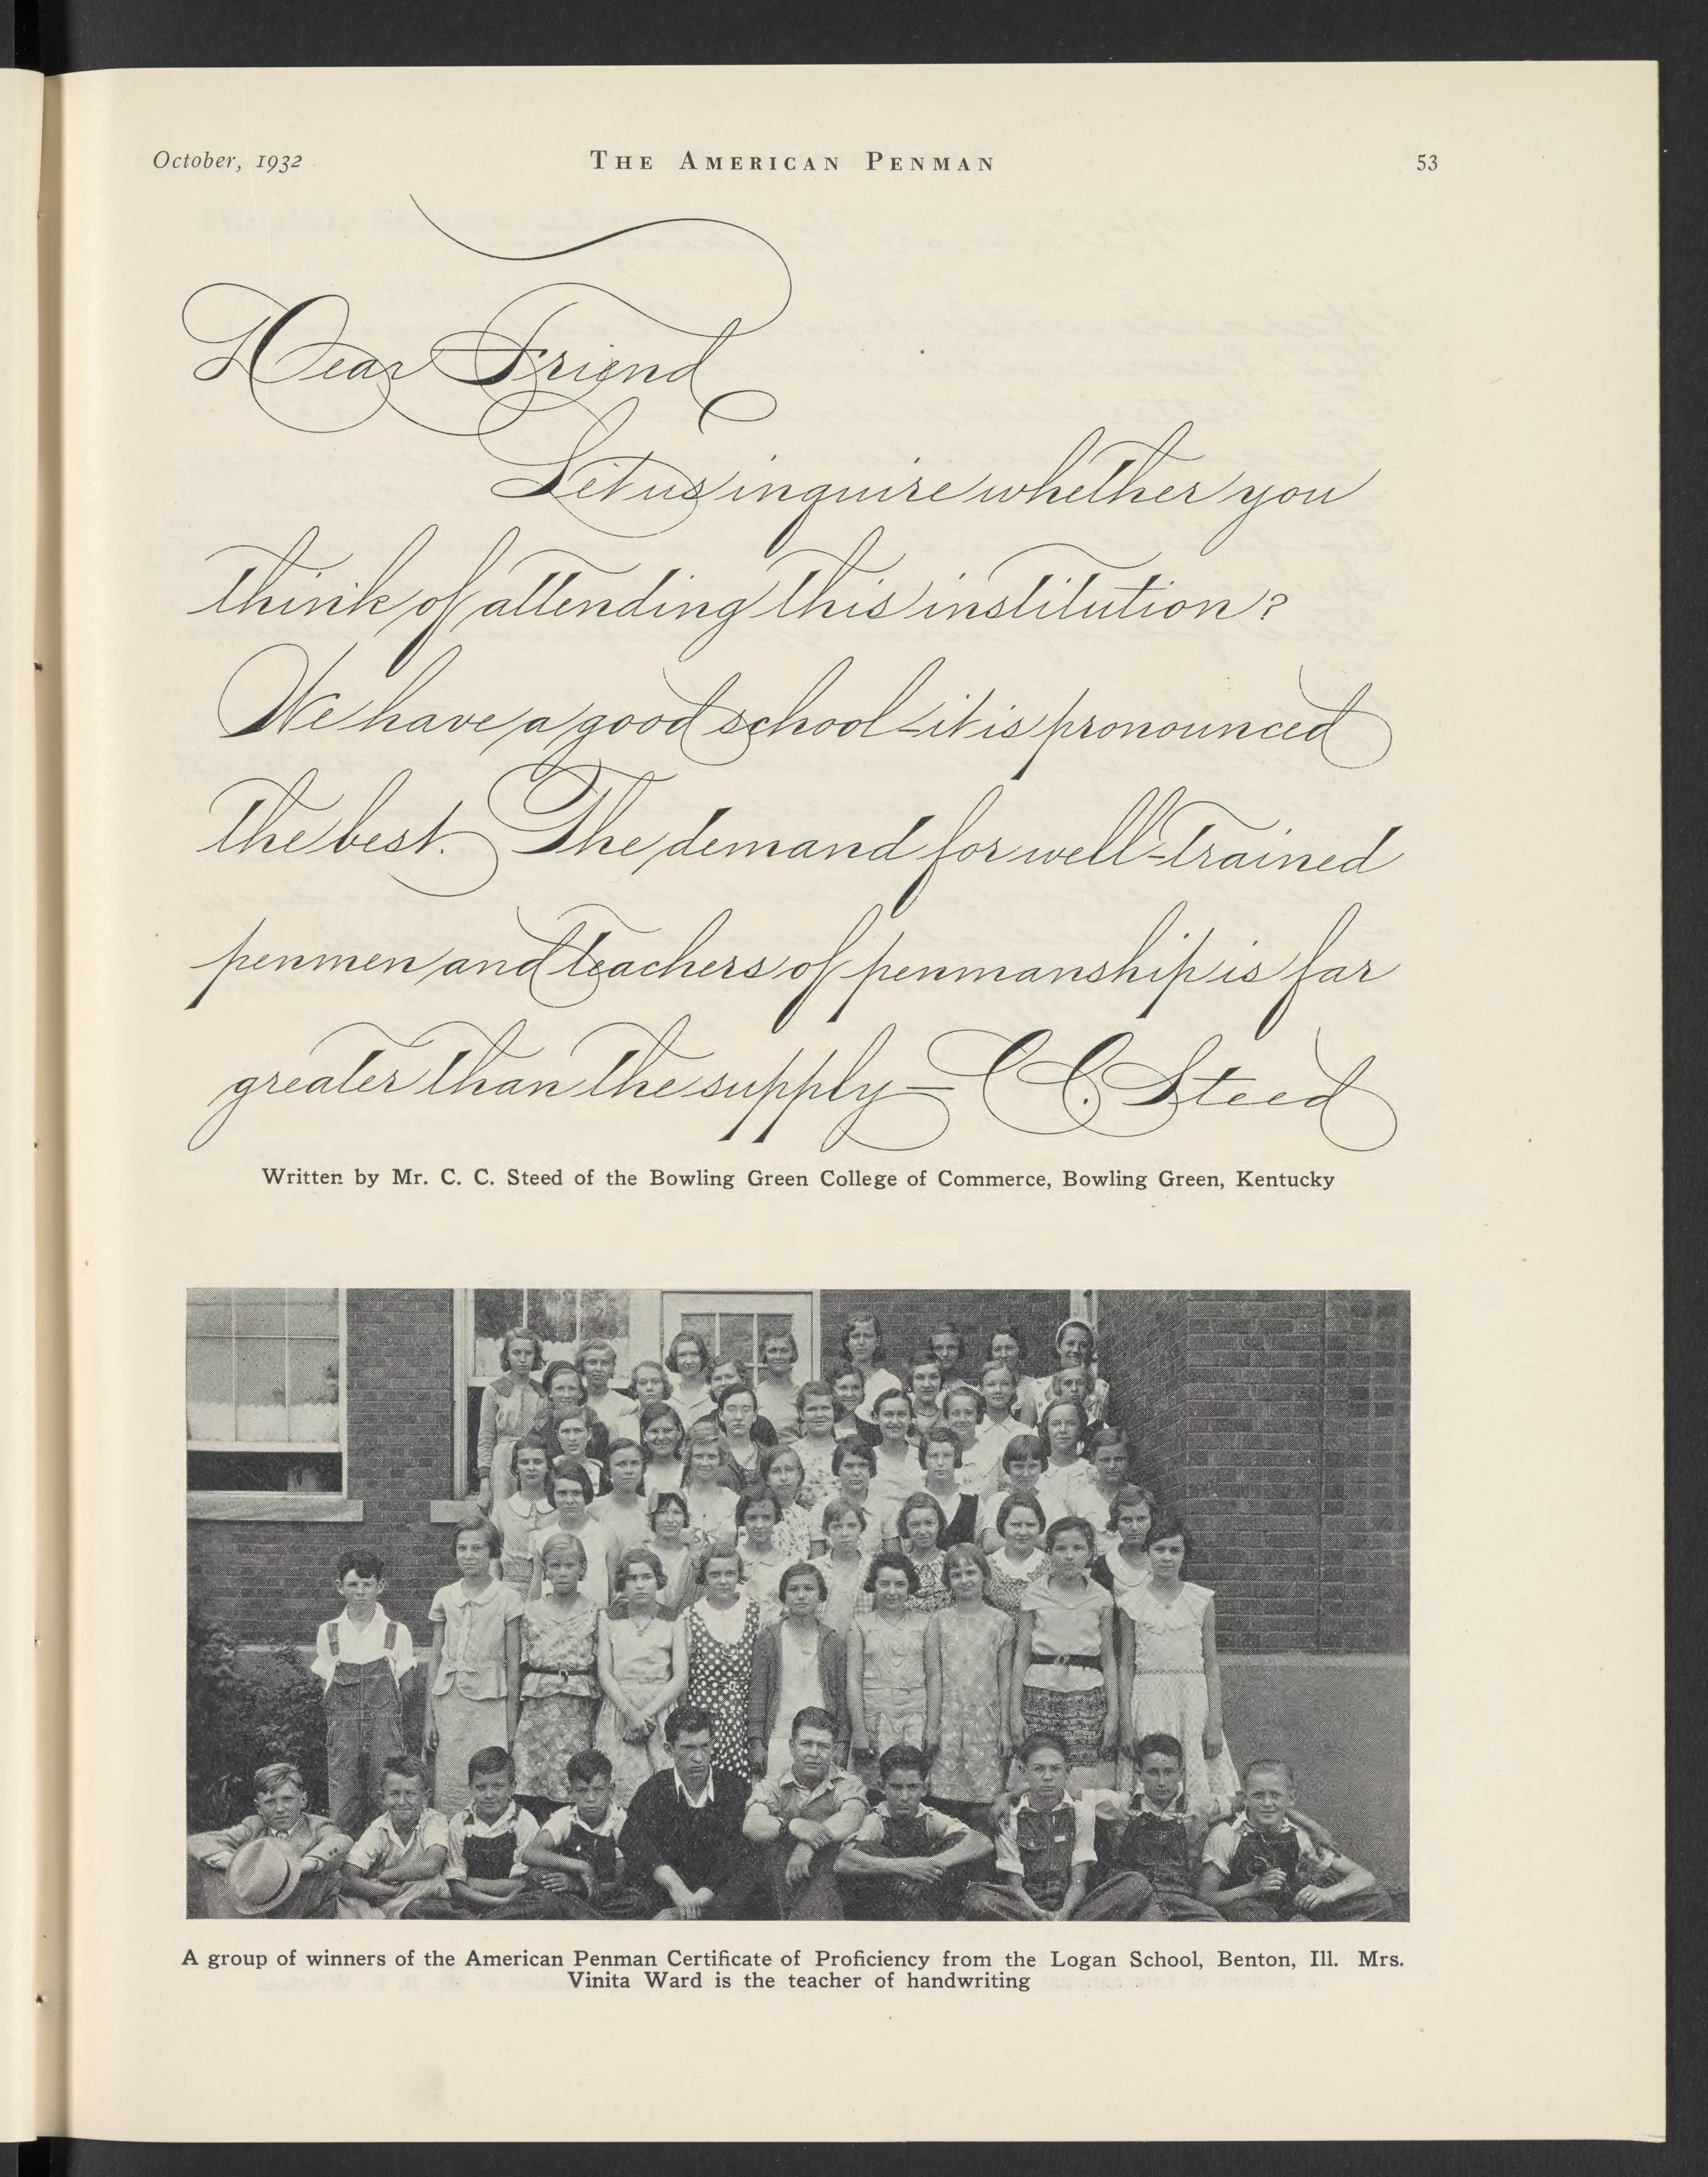 October, 1932 THE AMERICAN PENMAN 53
Dear Friend
Let us inquire whether you
think of attending this institution?
We have a good school - it is pronounced
the best. The demand for well-trained
penmen and teachers of penmanship is far
greater than the supply — C. C. Steed
Written by Mr. C. C. Steed of the Bowling Green College of Commerce, Bowling Green, Kentucky
A group of winners of the American Penman Certificate of Proficiency from the Logan School, Benton, Ill. Mrs.
Vinita Ward is the teacher of handwriting